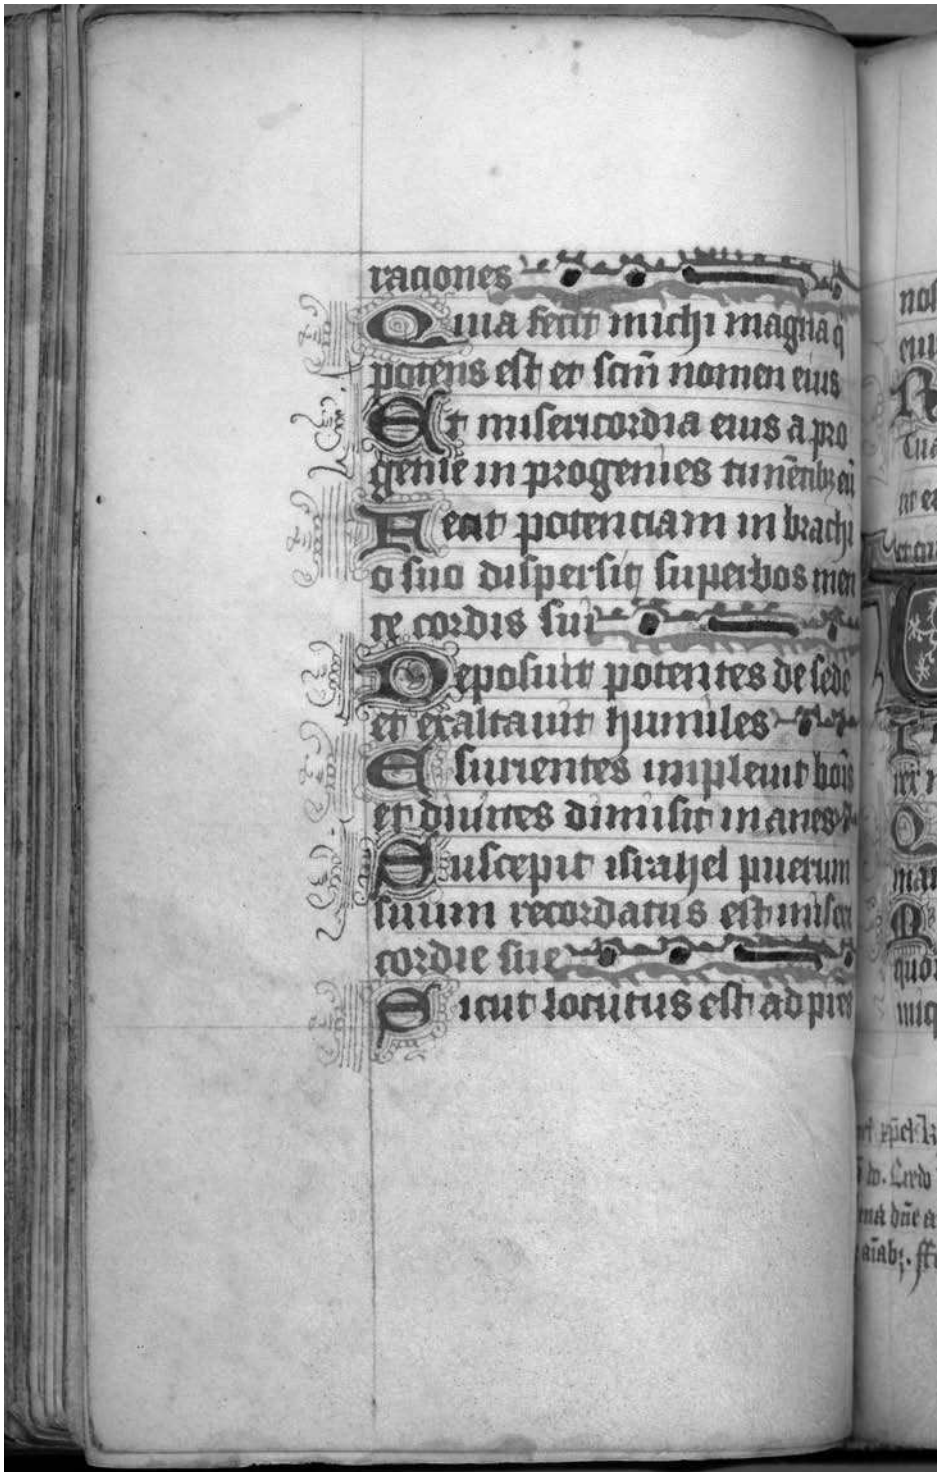 raciones
Quia fecit michi magna q
potens est et scm̄ nomen eius
Et misericordia eius a pro
genie in progenies
Fecit potenciam in brachi
o suo dispersit superbos men
te cordis sui
Deposuit potentes de sede
et exaltauit humiles
Esurientes impleuit bon̄s
et diuites dimisit inanes
Suscepit israhel puerum
suum recordatus est miseri
cordie sue
Sicut locutus est ad pres
nos
eius
tua
quor
Credo